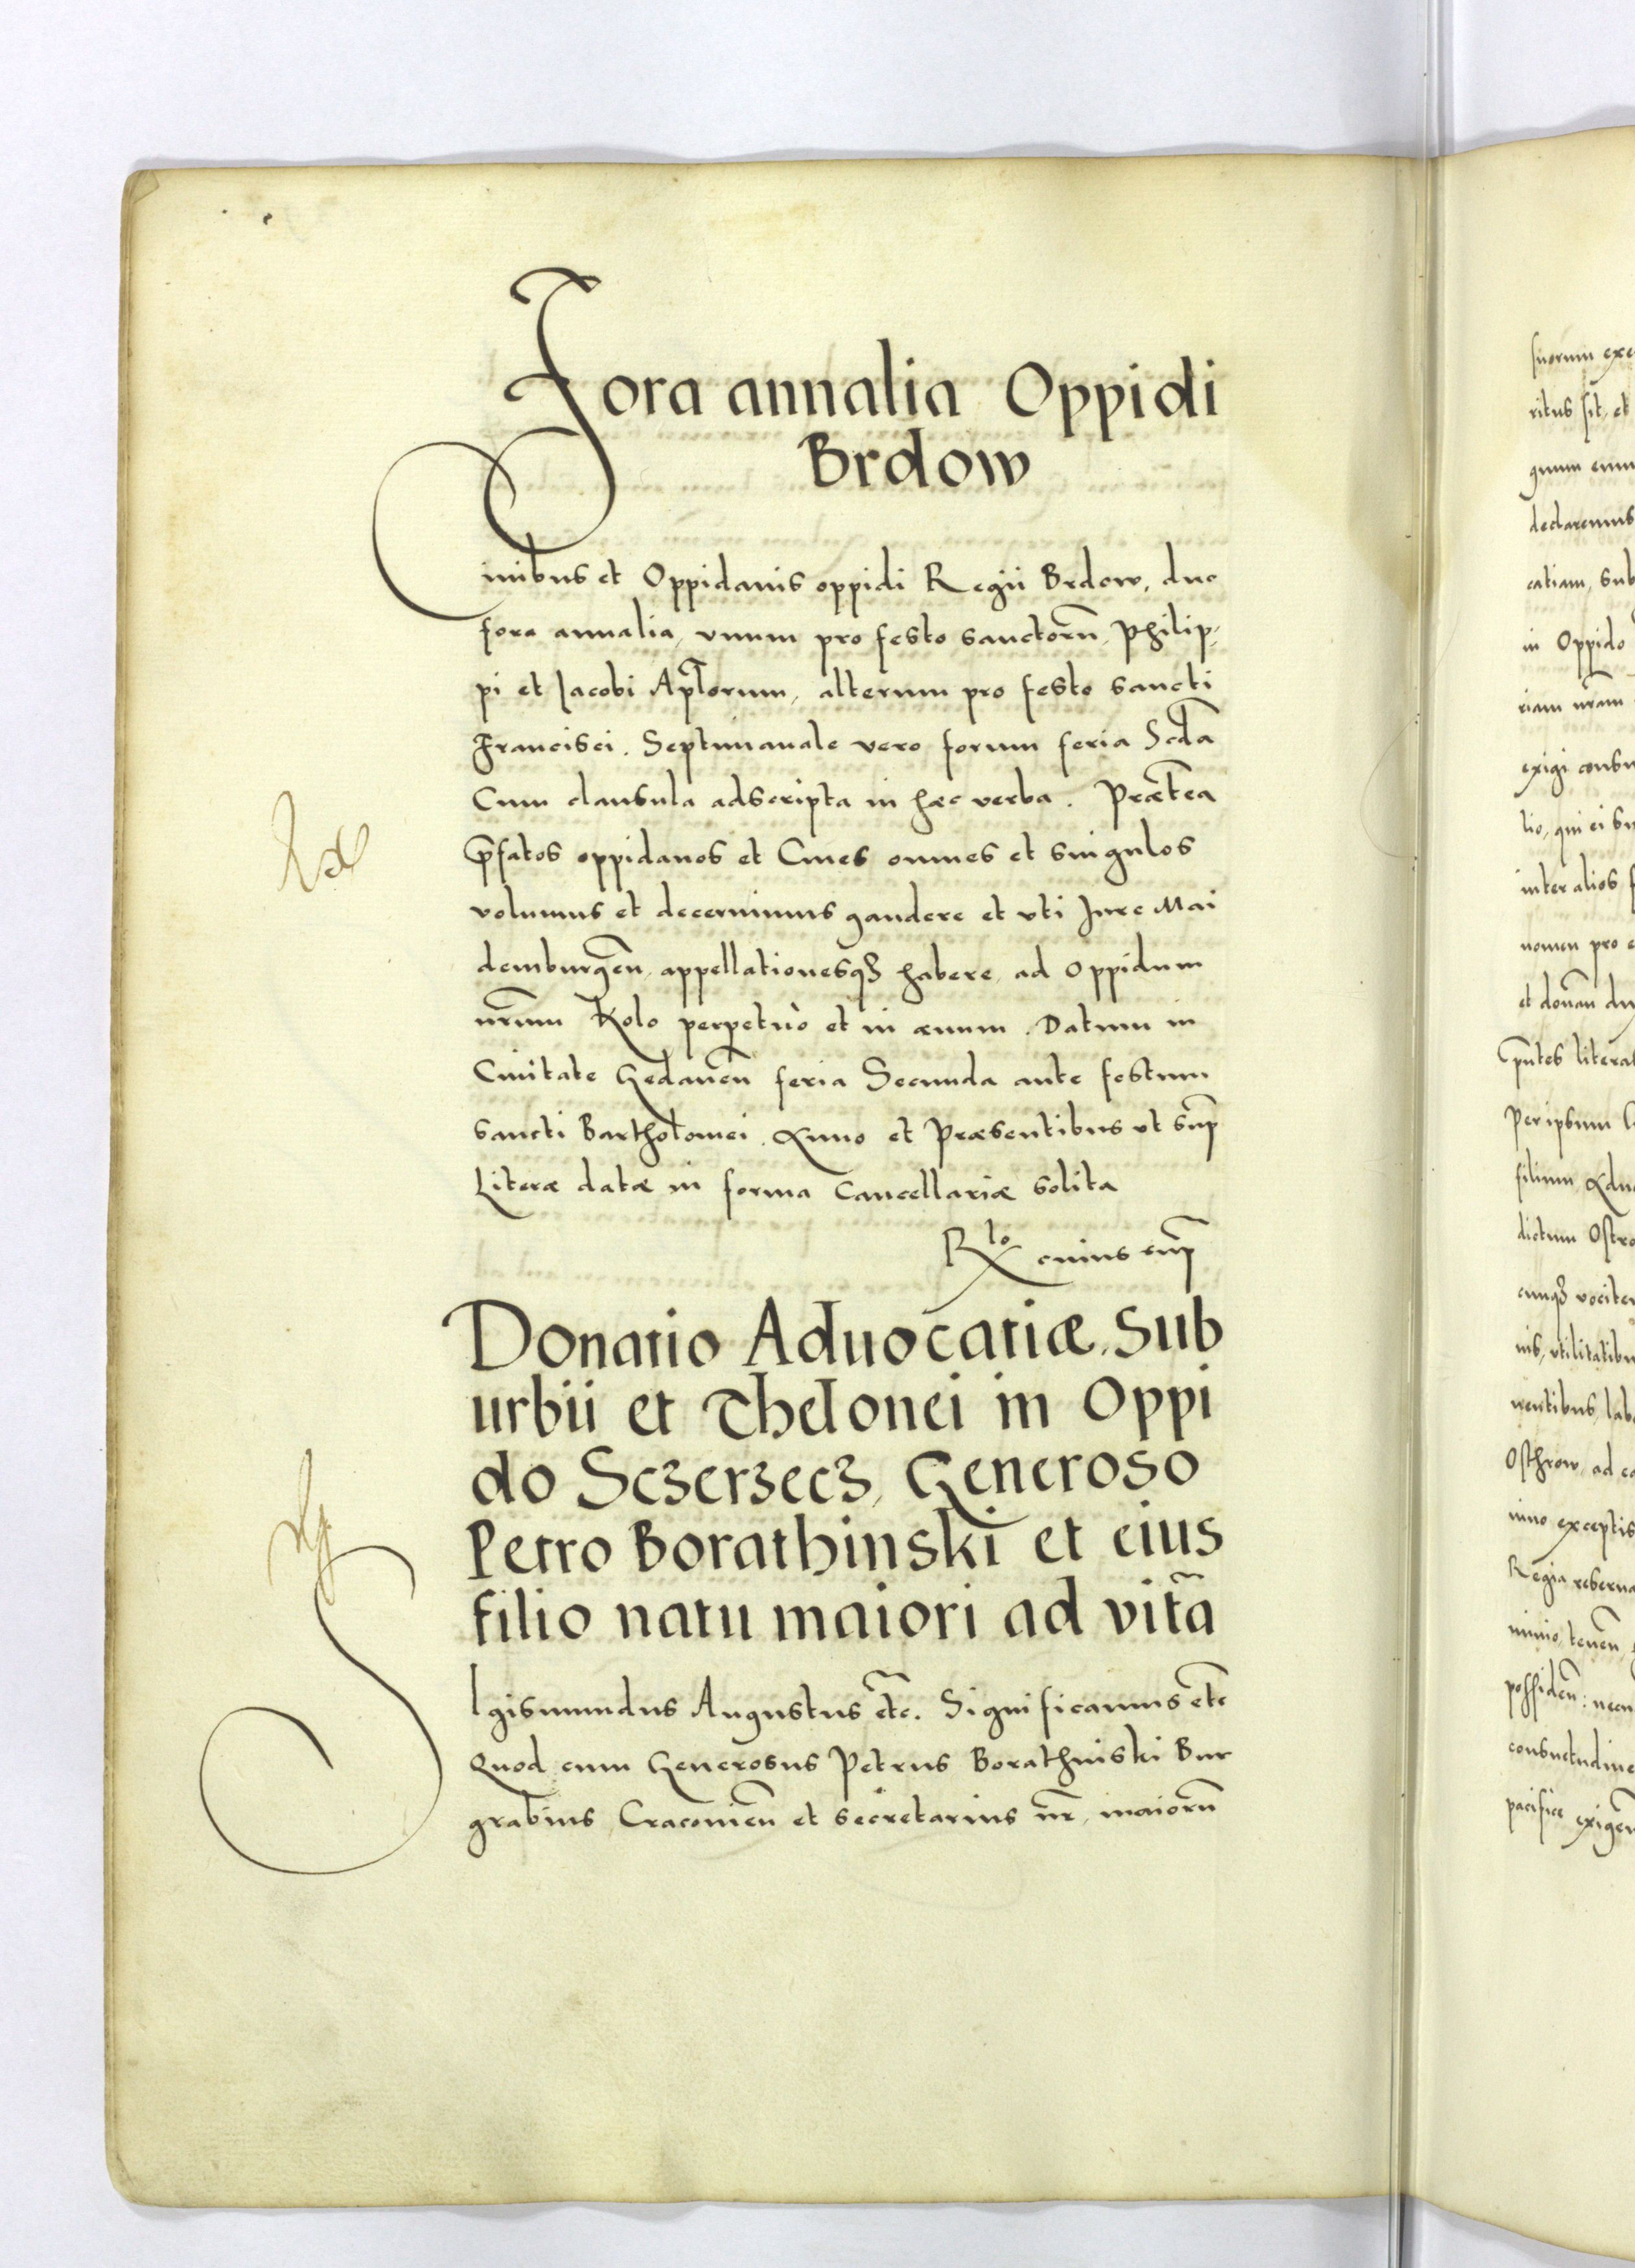 Fora annalia Oppidi
Brdow
Ciuibus et Oppidanis oppidi Regii Brdow, duo
fora annalia, vnum pro festo sanctorũ Philip,
pi et Jacobi Apl̃orum, alterum pro festo sancti
Francisci. Septimanale vero forum feria Scd̃a
Cum clausula adscripta in hæc verba. Præt̃ea
p̃fatos oppidanos et Ciues omnes et singulos
volumus et decernimus gaudere et vti Jure Mai
demburgeñ, appellationesqȝ habere, ad oppidum
nr̃um Kolo perpetuò et in æuum. Datum in
Ciuitate Gedaneñ feria Secunda ante festum
sancti Bartholomei. Anno et Præsentibus vt sup̃
Literæ datæ in forma Cancellariæ solita
Rlo cuius sup̃
Donatio Aduocatiæ, Sub
urbii et Thelonei in Oppi
do Sczerzecz, Generoso
Petro Borathinski et eius
filio natu maiori ad vitã
Sigismundus Augustus etc̃. Significamus etc̃
Quod cum Generosus Petrus Borathinski Bur
grabius Cracouieñ et secretarius nr̃, maiorũ
suorum exe
ritus sit, et
quum enim
declaremus
catiam, sub
in Oppido
riam nr̃am
exigi consu
tio, qui ei su
inter alios
nomen pro e
et donañ du
p̃ntes litera
Per ipsum
filium Adu
dictum Ostro
cunqȝ vocite
nis, vtilitatibu
uentibus, lab
Osthrow, ad ea
nino exceptis
Regia reserua
minio, teneñ
possideñ: necn
consuetudine
pacifice exigeñ